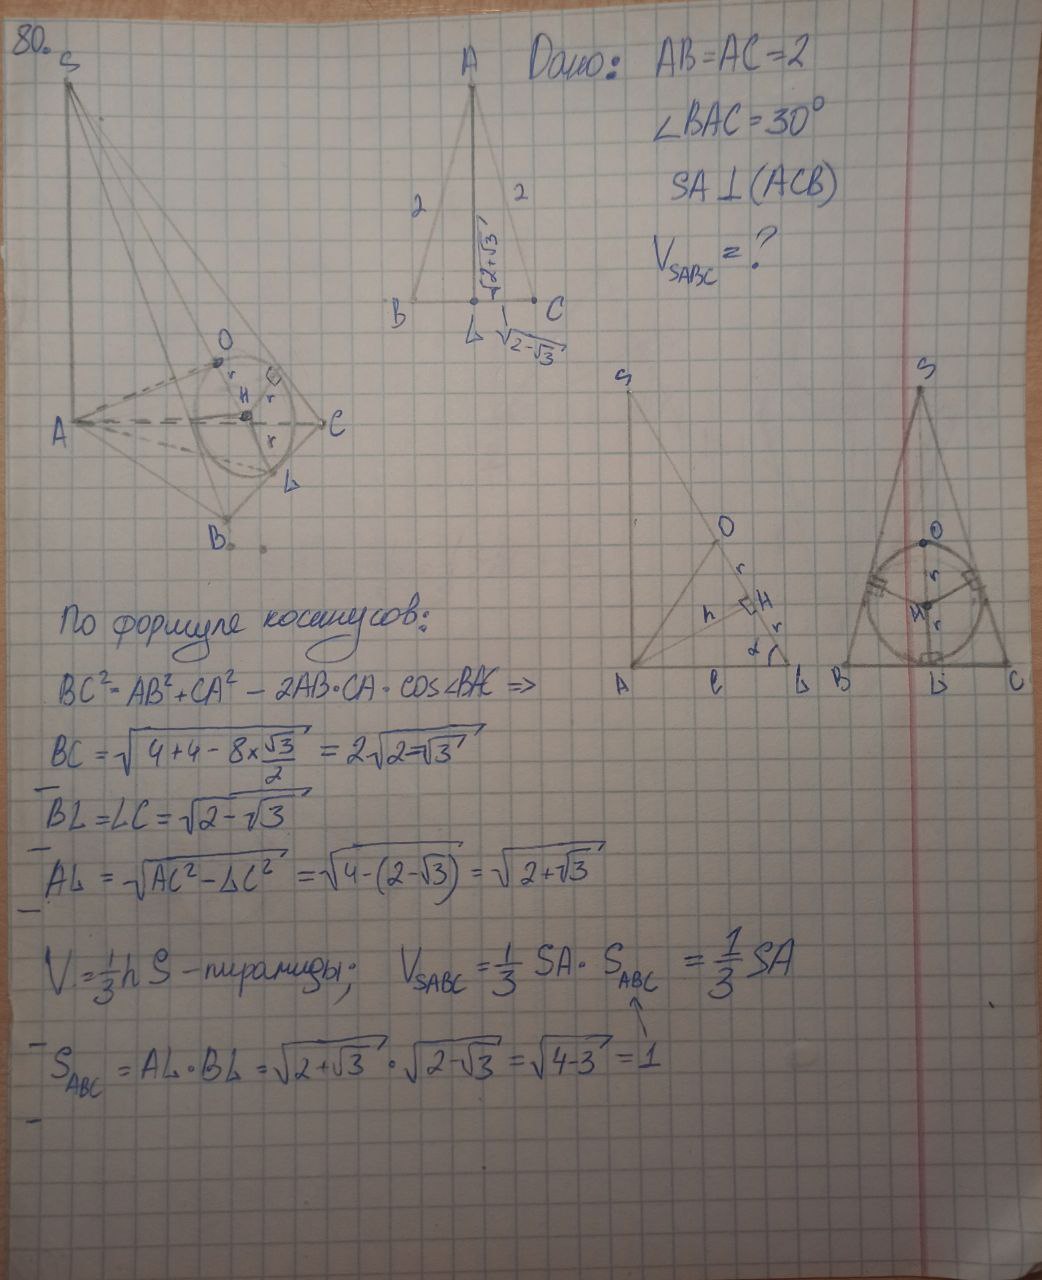 80.
Дано: AB=AC=2
∠BAC=30°
SA⊥(ACB)
V_SABC=?
A
2
2
√2+√3
B
L
C
√2-√3
S
O
r
H
r
r
A
C
L
B
S
O
r
H
h
r
α
A
l
L
S
O
r
H
r
B
L
C
По формуле косинусов:
BC²=AB²+CA²-2AB·CA·cos∠BAC =>
BC=√4+4-8×√3/2=2√2-√3
BL=LC=√2-√3
AL=√AC²-LC²=√4-(2-√3)=√2+√3
V=1/3hS-пирамиды; V_SABC=1/3 SA·S_ABC=1/3 SA
S_ABC=AL·BL=√2+√3·√2-√3=√4-3=1